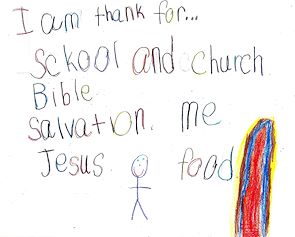 I am thank for...
School and church
Bible
salvation. me
Jesus food